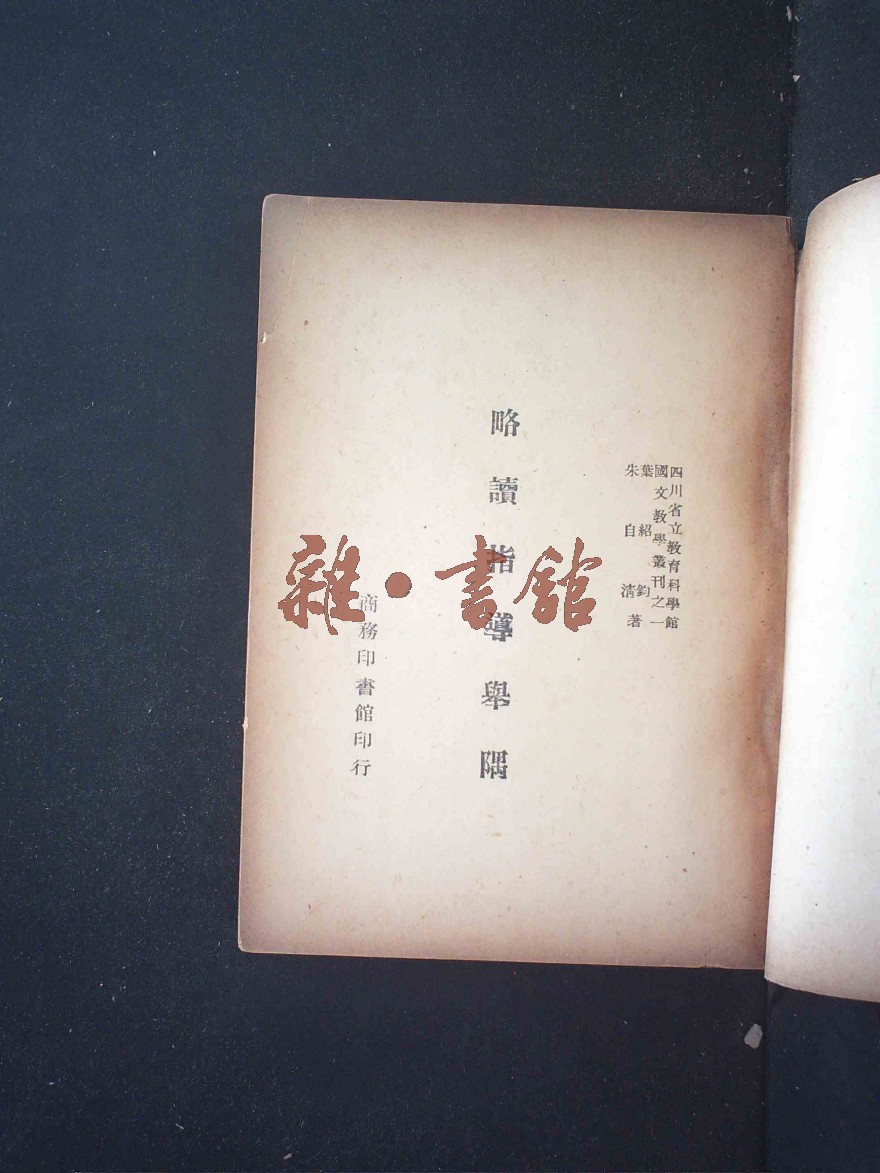 四川省立教育科學館
國文教學叢刊之一
葉紹鈞
朱自清著
略讀指導舉隅
商務印書館印行
雜·書館